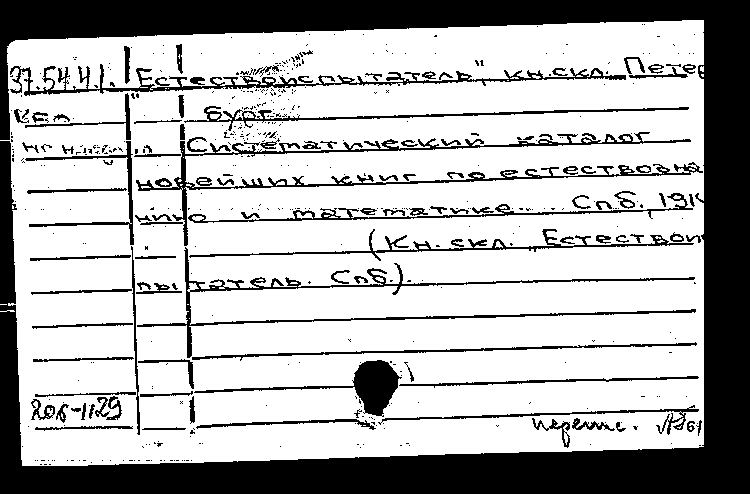 37.54.4.1. "Естествоиспытатель", кн.скл. Петер
бург
Систематический каталог
новейших книг по естествозна
нию и математике... Спб., 191
(Кн. скл. „Естествои
пытатель. Спб).
206-1129
перепис.